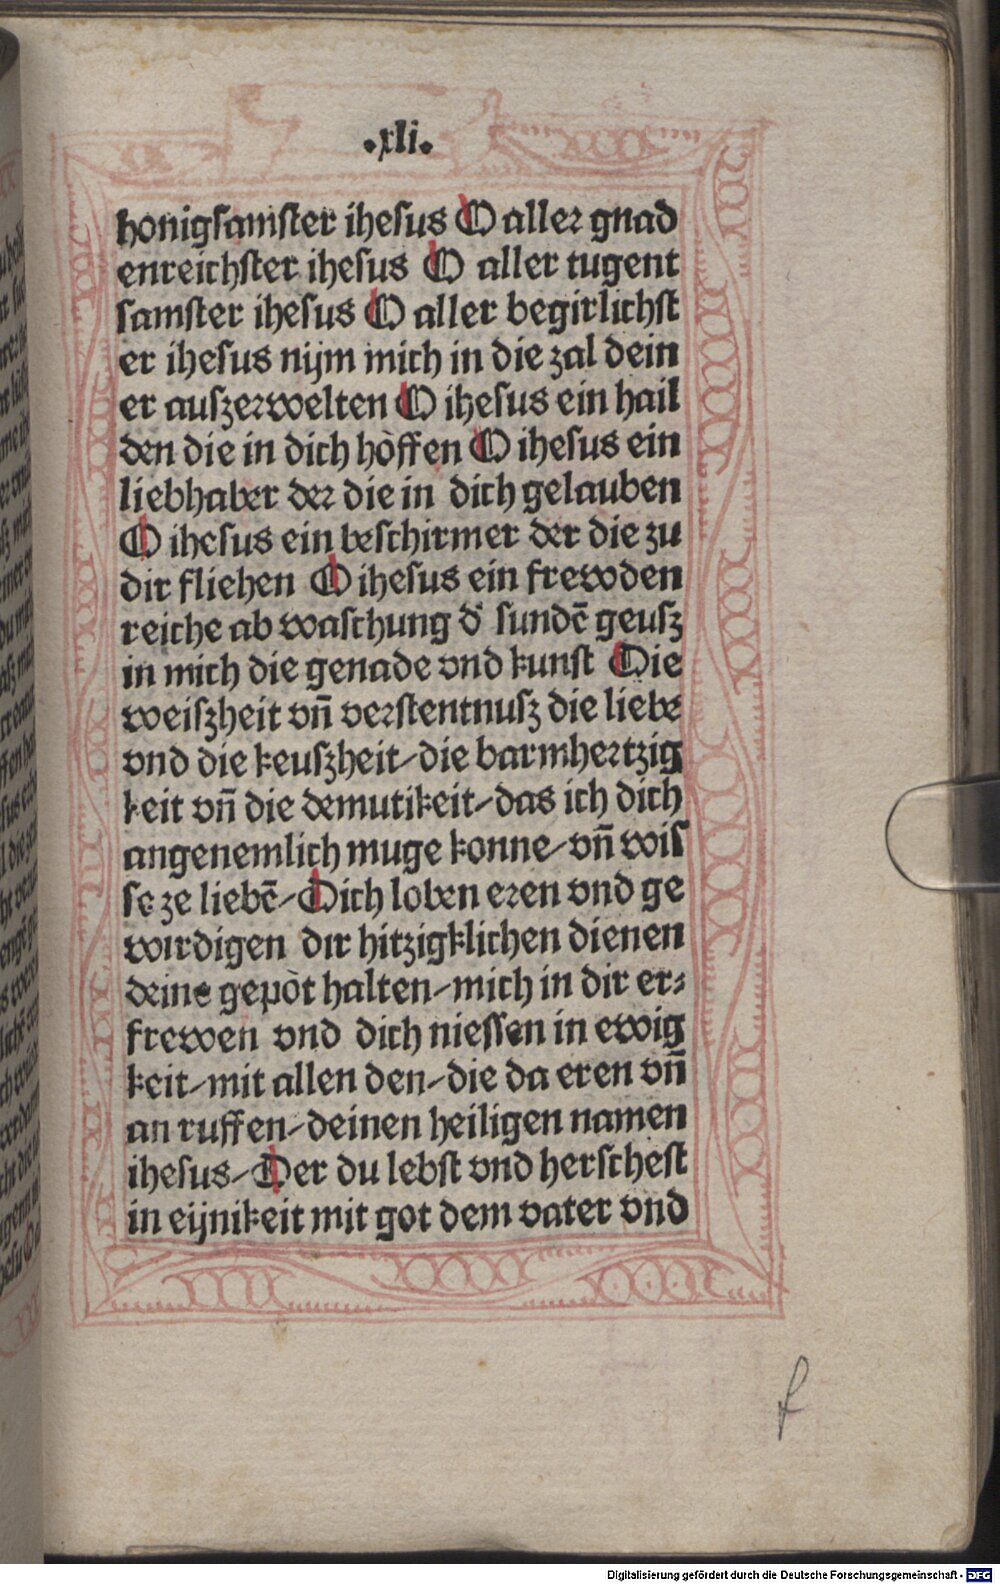 .xli.
honigsamster ihesus O aller gnad
enreichster ihesus O aller tugent
samster ihesus O aller begirlichst
er ihesus nijm mich in die zal dein
er auszerwelten O ihesus ein hail
den die in dich hòffen O ihesus ein
liebhaber der die in dich gelauben
O ihesus ein beschirmer der die zu
dir fliehen O ihesus ein frewden
reiche ab waschung d' sundē geusz
in mich die genade vnd kunst Die
weiszheit vn̄ verstentnusz die liebe
vnd die keuszheit/die barmhertzig
keit vn̄ die demutikeit/das ich dich
angenemlich muge konne/vn̄ wis
se ze liebē/Dich loben eren vnd ge
wirdigen dir hitzigklichen dienen
deine gepòt halten/mich in dir er⸗
frewen vnd dich niessen in ewig
keit/mit allen den/die da eren vn̄
an ruffen/deinen heiligen namen
ihesus/Der du lebst vnd herschest
in eijnikeit mit got dem vater vnd
f
Digitalisierung gefördert durch die Deutsche Forschungsgemeinschaft - DFG